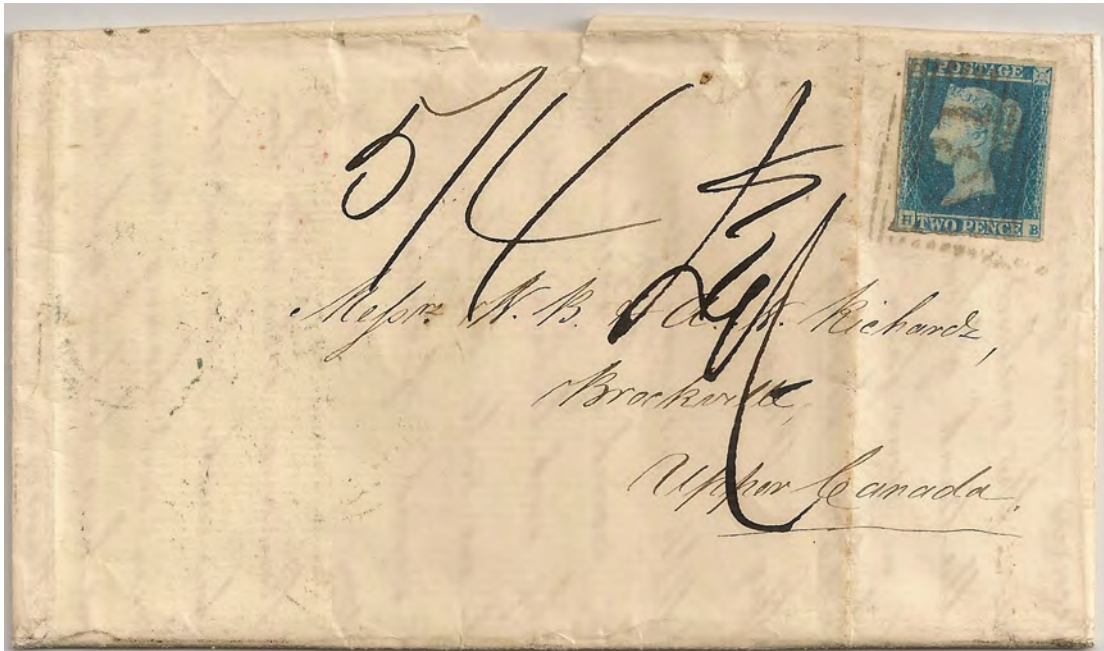 POSTAGE
H TWO PENCE B
5/4
Messrs W. B. & A. N. Richards,
Brockville,
Upper Canada.